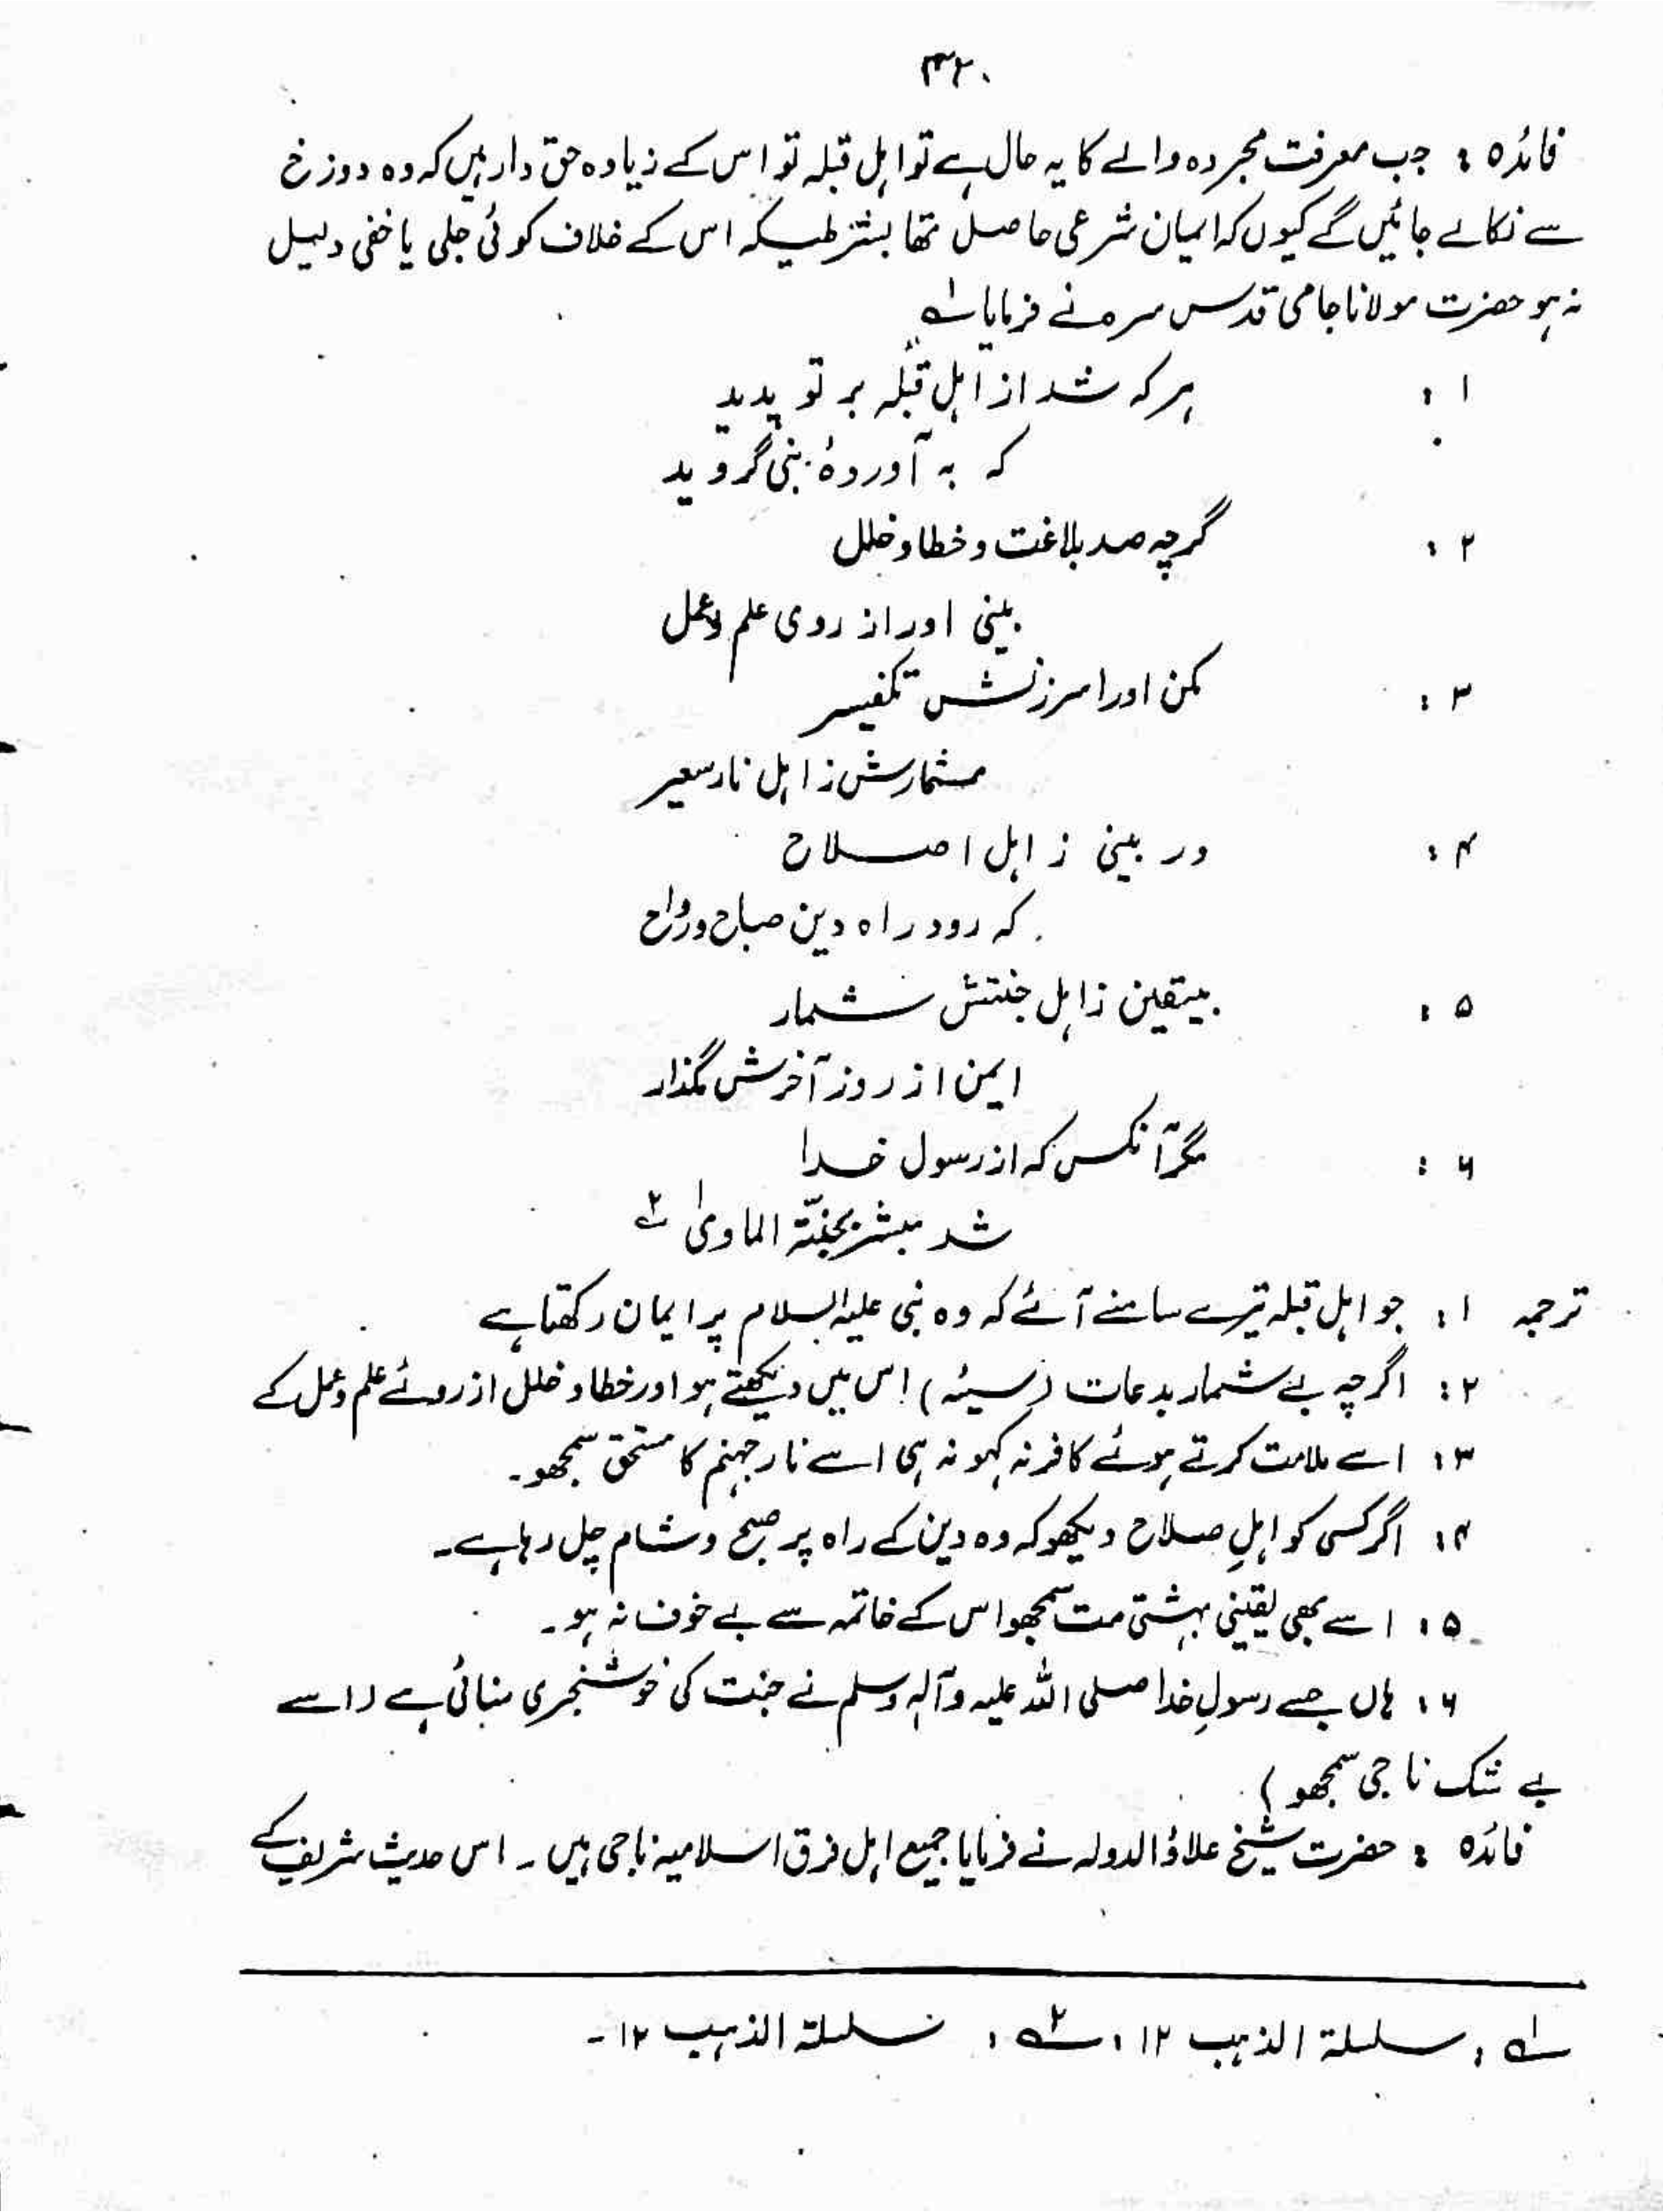 ۳۲۰
فائدہ : جب معرفت مجردہ والے کا یہ حال ہے تو اہل قبلہ تو اس کے زیادہ حق دار ہیں کہ وہ دوزخ
سے نکالے جائیں گے کیوں کہ ایمان شرعی حاصل تھا بشرطیکہ اس کے خلاف کوئی جلی یا خفی دلیل
نہ ہو حضرت مولانا جامی قدس سرہ نے فرمایا ۱؎
۱ : ہر کہ شد از اہل قبلہ بر تو پدید
کہ بہ آوردۂ نبی گروید
۲ : گرچہ صد بلاغت و خطا و خلل
بینی او را ز روی علم و عمل
۳ : مکن او را سرزنش تکفیر
مشمارش ز اہل نار سعیر
۴ : ور بینی ز اہل اصلاح
کہ رود راہ دین صباح و رواح
۵ : بیقین ز اہل جنتش شمار
ایمن از روز آخرش مگذار
۶ : مگر آنکس کہ از رسول خدا
شد مبشر بجنّۃ الماویٰ ۲؎
ترجمہ ۱ : جو اہل قبلہ تیرے سامنے آئے کہ وہ نبی علیہ السلام پر ایمان رکھتا ہے
۲ : اگرچہ بے شمار بدعات (سیئہ) اس میں دیکھتے ہو اور خطا و خلل از روئے علم و عمل کے
۳ : اسے ملامت کرتے ہوئے کافر نہ کہو نہ ہی اسے نار جہنم کا مستحق سمجھو۔
۴ : اگر کسی کو اہلِ صلاح دیکھو کہ وہ دین کے راہ پر صبح و شام چل رہا ہے۔
۵ : اسے بھی یقینی بہشتی مت سمجھو اس کے خاتمہ سے بے خوف نہ ہو۔
۶ : ہاں جسے رسولِ خدا صلی اللہ علیہ وآلہ وسلم نے جنت کی خوشخبری سنائی ہے (اسے
بے شک ناجی سمجھو)
فائدہ : حضرت شیخ علاؤ الدولہ نے فرمایا جمیع اہل فرق اسلامیہ ناجی ہیں ۔ اس حدیث شریف کے
۱؎ : سلسلۃ الذہب ۱۲ ، ۲؎ : سلسلۃ الذہب ۱۲۔